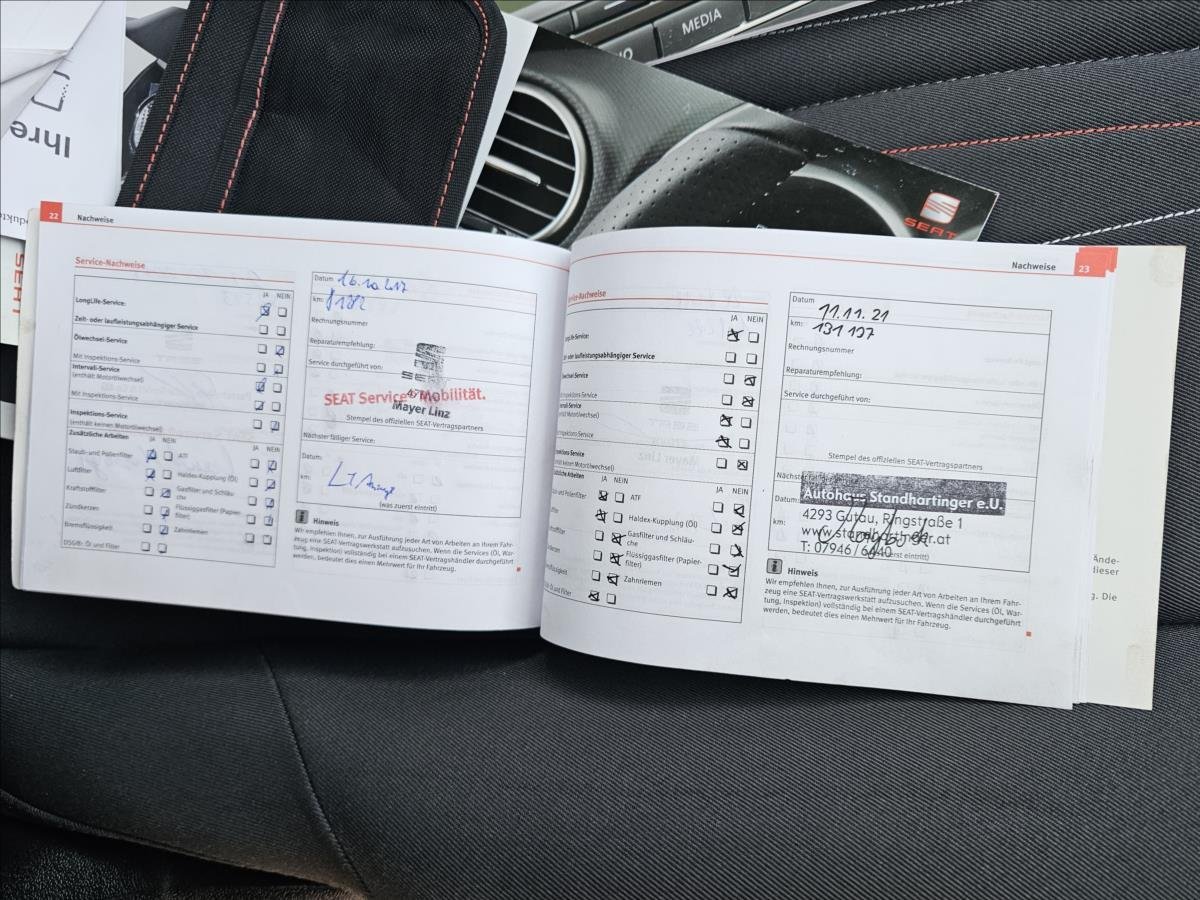 MEDIA
Ihre
SEAT
SEAT
22 Nachweise
Service-Nachweise
JA NEIN
LongLife-Service:
Zeit- oder laufleistungsabhängiger Service
Ölwechsel-Service
Mit Inspektions-Service
Intervall-Service
(enthält Motorölwechsel)
Mit Inspektions-Service
Inspektions-Service
(enthält keinen Motorölwechsel)
Zusätzliche Arbeiten
JA NEIN
JA NEIN
Staub- und Pollenfilter
ATF
Luftfilter
Haldex-Kupplung (Öl)
Kraftstofffilter
Gasfilter und Schläu-
che
Zündkerzen
Flüssiggasfilter (Papier-
filter)
Bremsflüssigkeit
Zahnriemen
DSG®: Öl und Filter
Datum
km:
Rechnungsnummer
Reparaturempfehlung:
Service durchgeführt von:
SEAT Service Mobilität.
Mayer Linz
Stempel des offiziellen SEAT-Vertragspartners
Nächster fälliger Service:
Datum:
km:
(was zuerst eintritt)
Hinweis
Wir empfehlen Ihnen, zur Ausführung jeder Art von Arbeiten an Ihrem Fahr-
zeug eine SEAT-Vertragswerkstatt aufzusuchen. Wenn die Services (Öl, War-
tung, Inspektion) vollständig bei einem SEAT-Vertragshändler durchgeführt
werden, bedeutet dies einen Mehrwert für Ihr Fahrzeug.
Nachweise 23
Service-Nachweise
JA NEIN
Service:
oder laufleistungsabhängiger Service
JA NEIN
JA NEIN
ATF
Haldex-Kupplung (Öl)
Gasfilter und Schläu-
che
Flüssiggasfilter (Papier-
filter)
Zahnriemen
Öl und Filter
Datum 11.11.21
km: 131 197
Rechnungsnummer
Reparaturempfehlung:
Service durchgeführt von:
Stempel des offiziellen SEAT-Vertragspartners
Autohaus Standhartinger e.U.
Datum:
4293 Gutau, Ringstraße 1
km:
www.standhartinger.at
T: 07946 / 6640
Hinweis
Wir empfehlen Ihnen, zur Ausführung jeder Art von Arbeiten an Ihrem Fahr-
zeug eine SEAT-Vertragswerkstatt aufzusuchen. Wenn die Services (Öl, War-
tung, Inspektion) vollständig bei einem SEAT-Vertragshändler durchgeführt
werden, bedeutet dies einen Mehrwert für Ihr Fahrzeug.
Ände-
dieser
g. Die